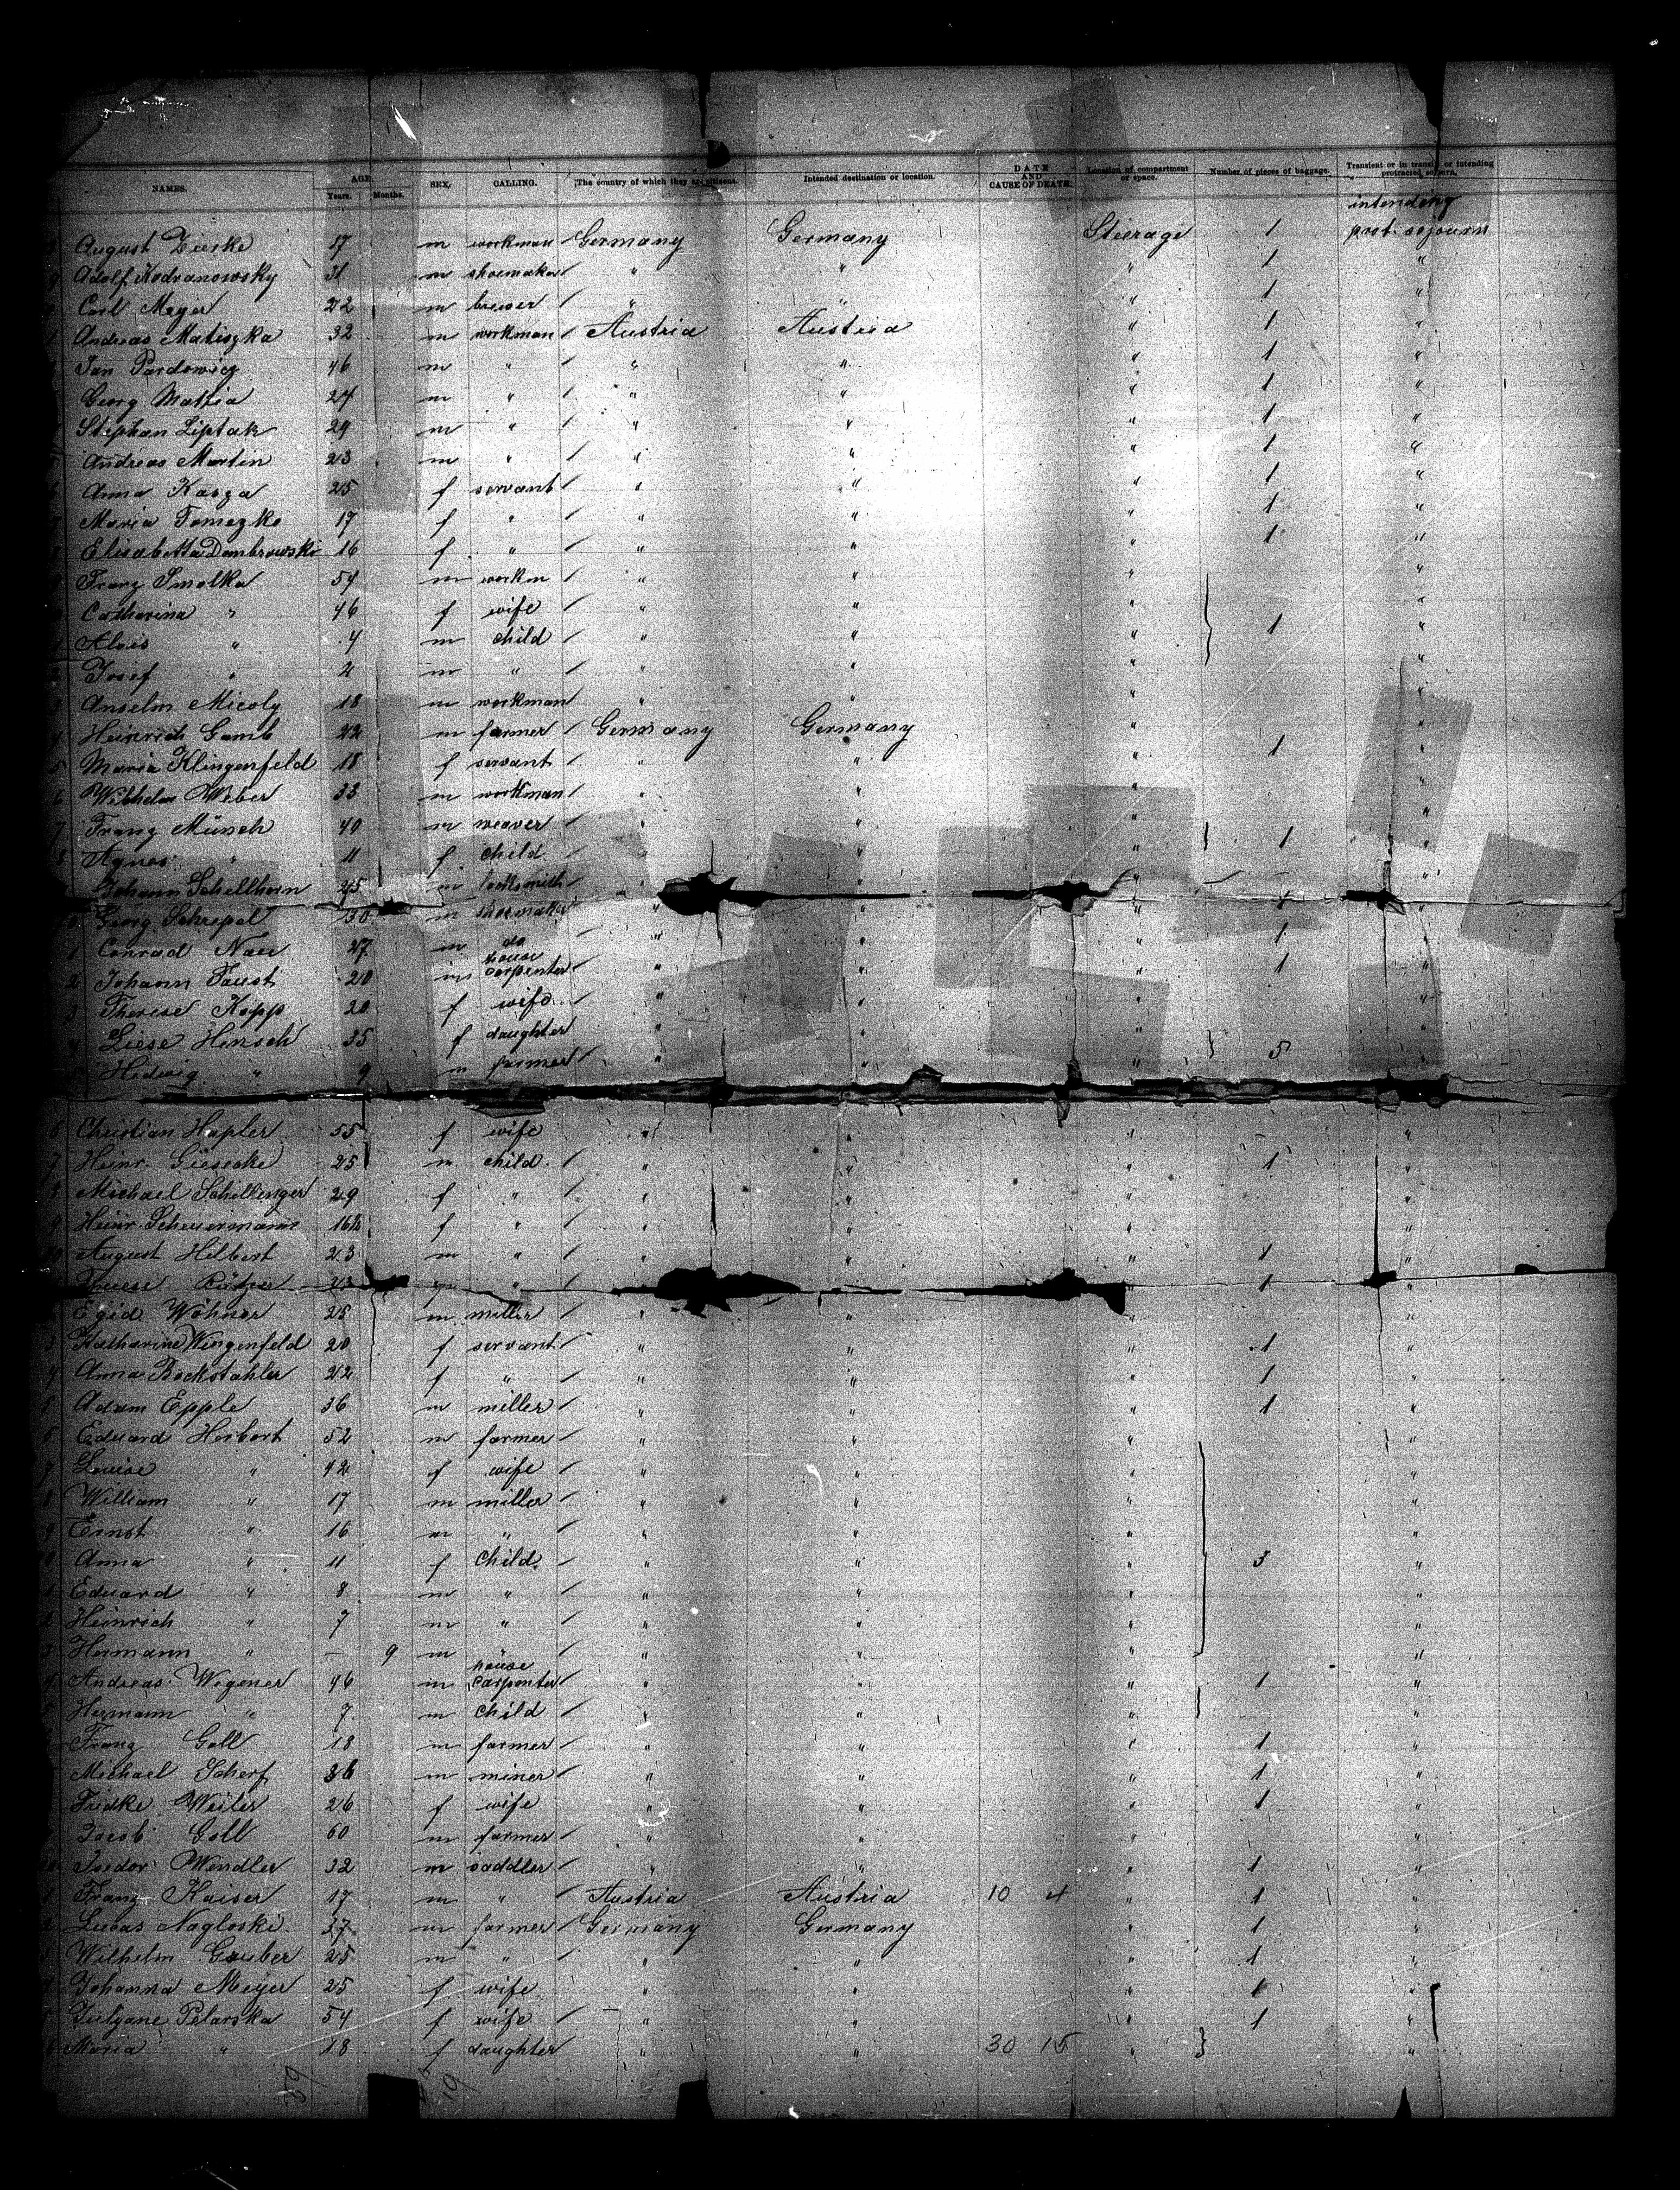 NAMES. AGE. Years. Months. SEX. CALLING. The country of which they are citizens. Intended destination or location. DATE AND CAUSE OF DEATH. Location of compartment or space. Number of pieces of baggage. Transient or in transit, or intending protracted sojourn.
intending
August Zierke 17 m workman Germany Germany Steerage 1 prot. sojourn
Adolf Kodranowsky 31 m shoemaker " " " 1 "
Carl Meyer 22 m brewer " " " 1 "
Andreas Matiszka 32 m workman Austria Austria " 1 "
Jan Pardowicz 46 m " " " " 1 "
Georg Mattia 24 m " " " " 1 "
Stephan Liptak 29 m " " " " 1 "
Andreas Martin 23 m " " " " 1 "
Anna Kasza 25 f servant " " " 1 "
Maria Tomezko 17 f " " " " 1 "
Elisabetta Dombrowski 16 f " " " " 1 "
Franz Smolka 54 m workm " " " "
Catharina " 46 f wife " " " "
Alois " 4 m child " " " 1 "
Josef " 2 m " " " " "
Anselm Micoly 18 m workman " " " "
Heinrich Gamb 22 m farmer Germany Germany " "
Maria Klingenfeld 18 f servant " " " 1 "
Wilhelm Weber 33 m workman " " " "
Franz Münch 40 m weaver " " " "
Agnes " 11 f child " " " 1 "
Johann Schellhorn 25 m locksmith " " "
Georg Schrepel 30 m shoemaker " " " 1 "
Conrad Nau 27 m do " " " 1 "
house
Johann Faust 20 m carpenter " " " 1 "
Therese Kopp 20 f wife " " " "
Liese Hensch 35 f daughter " " " "
Hedwig " 9 m farmer " " " 5 "
Christian Hapler 55 f wife " " " "
Heinr. Giesecke 25 m child " " " 1 "
Michael Schillinger 29 f " " " " "
Heinr. Scheuermann 16½ f " " " " "
August Hilbert 23 m " " " " 1 "
23 " " 1 "
Egid Wöhner 25 m miller " " " "
Katharine Wingenfeld 20 f servant " " " 1 "
Anna Bockstahler 22 f " " " " 1 "
Adam Epple 36 m miller " " " 1 "
Eduard Herbert 52 m farmer " " " "
Louise " 42 f wife " " " "
William " 17 m miller " " " "
Ernst " 16 m " " " " "
Anna " 11 f child " " " 3 "
Eduard " 8 m " " " " "
Heinrich " 7 m " " " " "
Hermann " — 9 m " " " "
house
Andreas Wegener 46 m carpenter " " " 1 "
Hermann " 7 m child " " " "
Franz Goll 18 m farmer " " " 1 "
Michael Scherf 36 m miner " " " 1 "
Weiler 26 f wife " " " 1 "
Jacob Goll 60 m farmer " " " "
Isidor Wendler 32 m saddler " " " 1 "
Franz Kaiser 17 m " Austria Austria 10 4 " 1 "
Lucas Nagloski 27 m farmer Germany Germany " 1 "
Wilhelm Gruber 25 m " " " " 1 "
Johanna Meyer 25 f wife " " " 1 "
Julyane Pelarska 54 f wife " " " 1 "
Maria " 18 f daughter " " 30 15 " "